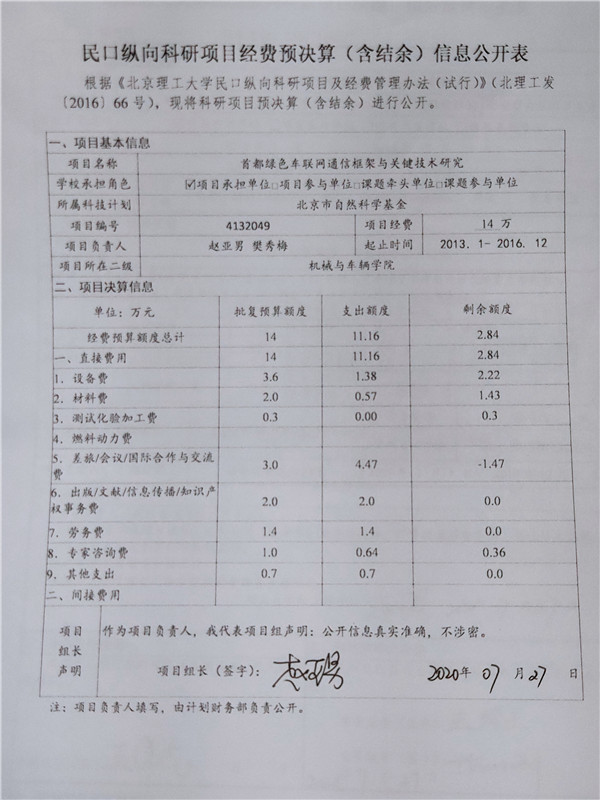 民口纵向科研项目经费预决算（含结余）信息公开表
根据《北京理工大学民口纵向科研项目及经费管理办法（试行）》（北理工发
〔2016〕66号），现将科研项目预决算（含结余）进行公开。
一、项目基本信息
项目名称 首都绿色车联网通信框架与关键技术研究
学校承担角色 ☑项目承担单位□项目参与单位□课题牵头单位□课题参与单位
所属科技计划 北京市自然科学基金
项目编号 4132049 项目经费 14 万
项目负责人 赵亚男 樊秀梅 起止时间 2013.1-2016.12
项目所在二级 机械与车辆学院
二、项目决算信息
单位：万元 批复预算额度 支出额度 剩余额度
经费预算额度总计 14 11.16 2.84
一、直接费用 14 11.16 2.84
1. 设备费 3.6 1.38 2.22
2. 材料费 2.0 0.57 1.43
3. 测试化验加工费 0.3 0.00 0.3
4. 燃料动力费
5. 差旅/会议/国际合作与交流
费 3.0 4.47 -1.47
6. 出版/文献/信息传播/知识产
权事务费 2.0 2.0 0.0
7. 劳务费 1.4 1.4 0.0
8. 专家咨询费 1.0 0.64 0.36
9. 其他支出 0.7 0.7 0.0
二、间接费用
项目
组长
声明
作为项目负责人，我代表项目组声明：公开信息真实准确，不涉密。
项目组长（签字）： 赵亚男 2020年 07 月 27 日
注：项目负责人填写，由计划财务部负责公开。